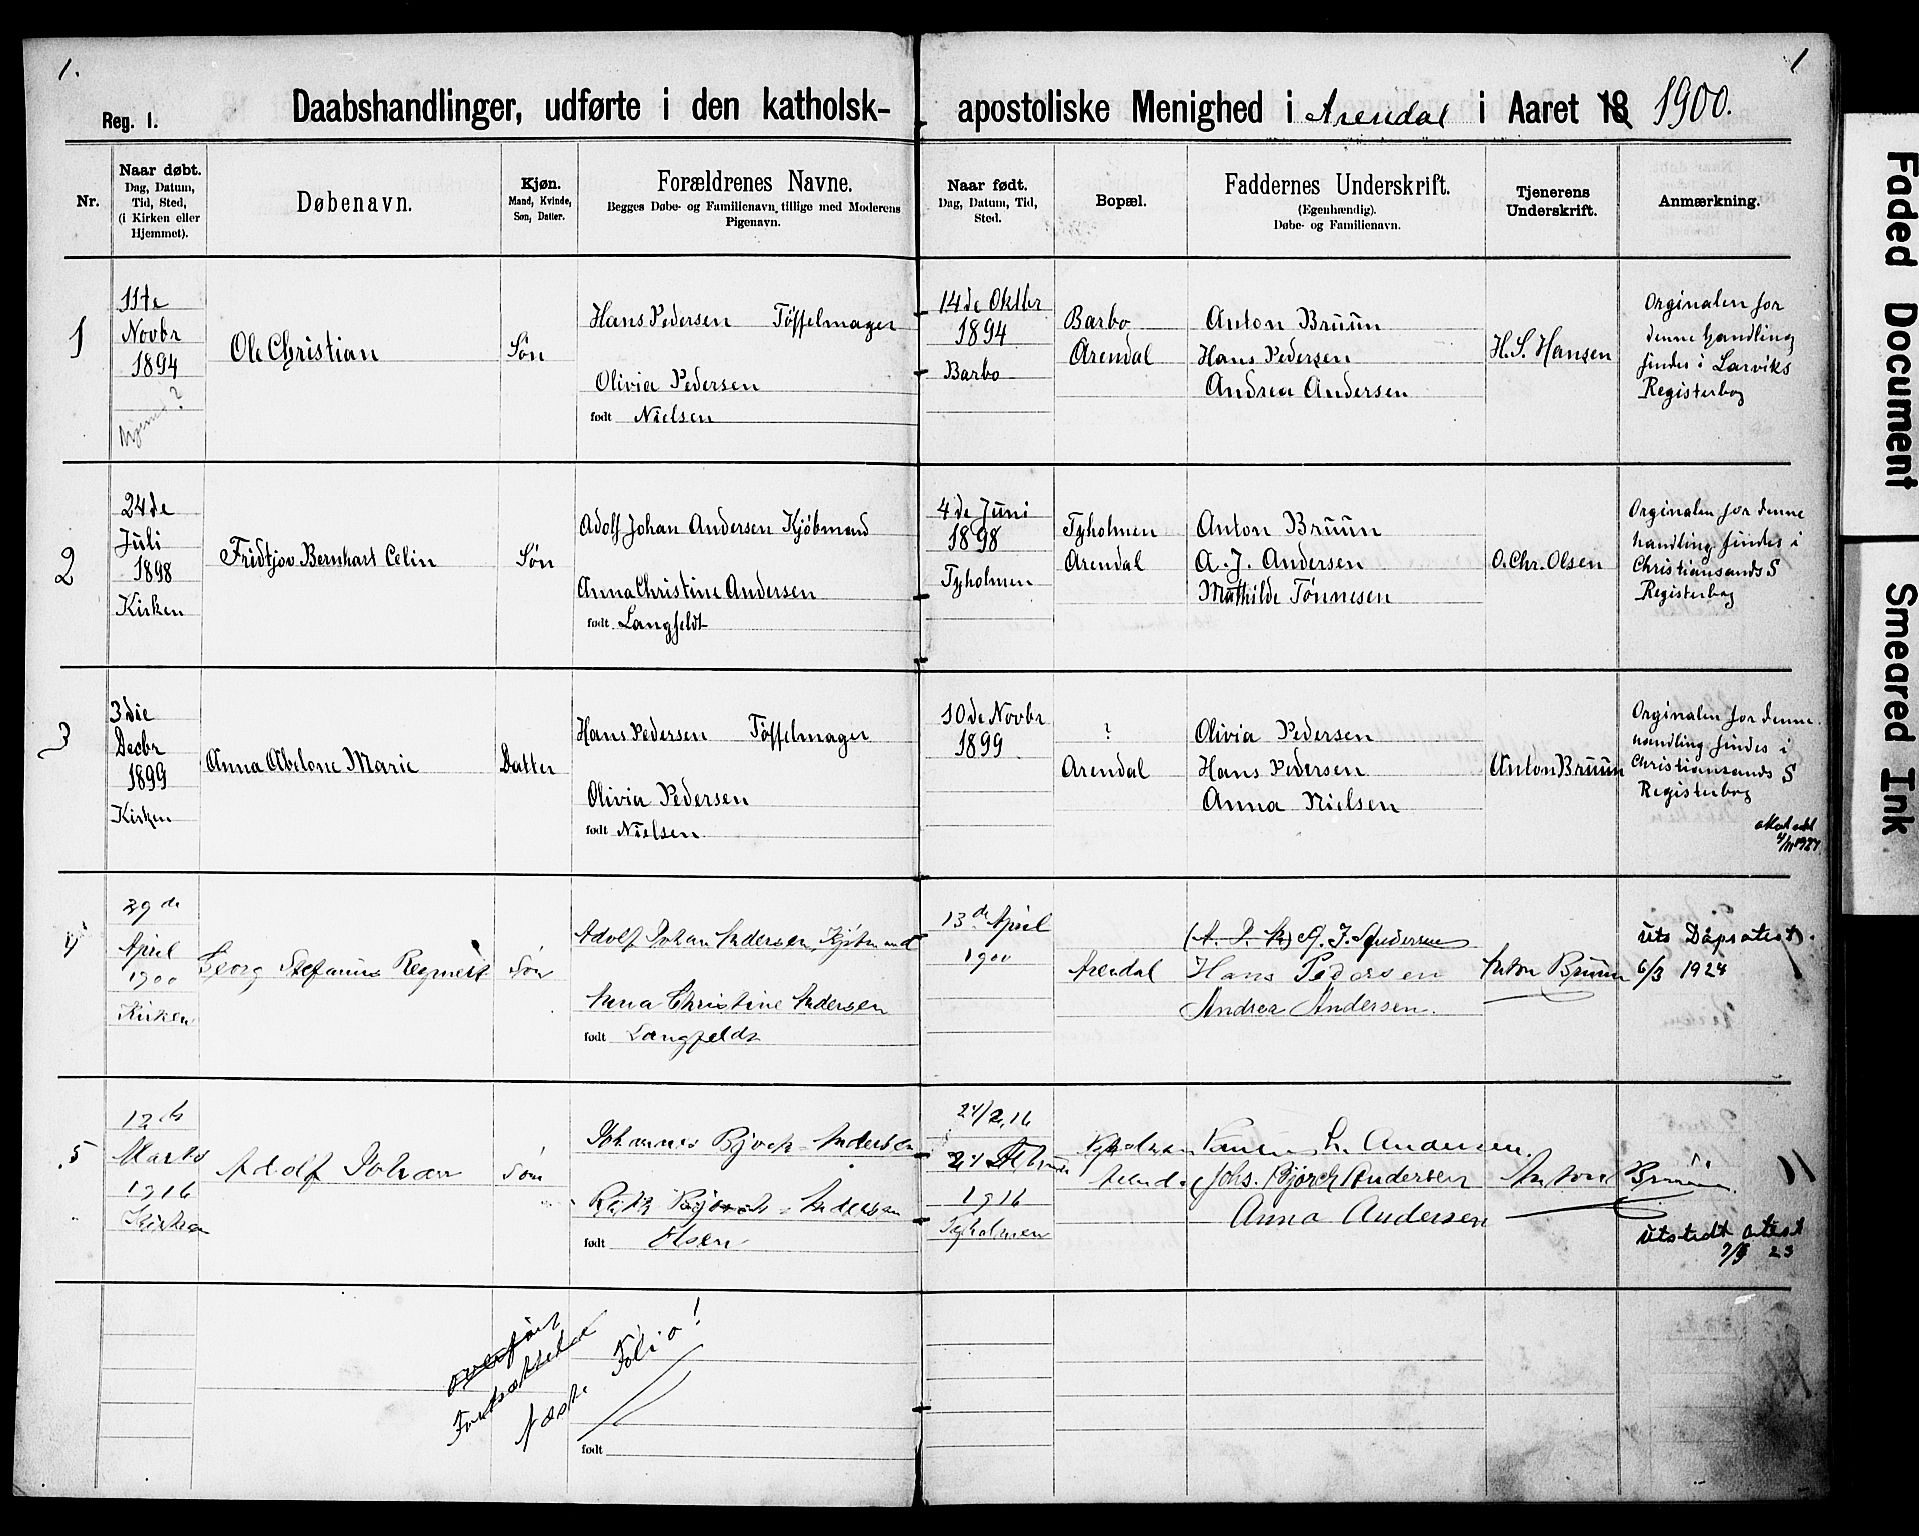 1.
1
Reg. 1.
Daabshandlinger, udførte i den katholsk-apostoliske Menighed i Arendal i Aaret 18 1900.
Nr.
Naar døbt.
Dag, Datum,
Tid, Sted,
(i Kirken eller
Hjemmet).
Døbenavn.
Kjøn.
Mand, Kvinde,
Søn, Datter.
Forældrenes Navne.
Begges Døbe- og Familienavn, tillige med Moderens
Pigenavn.
Naar født.
Dag, Datum, Tid,
Sted.
Bopæl.
Faddernes Underskrift.
(Egenhændig).
Døbe- og Familienavn.
Tjenerens
Underskrift.
Anmærkning.
1
11te
Novbr
1894
Hjemmet?
Ole Christian
Søn
Hans Pedersen Tøffelmager
Olivia Pedersen
født Nielsen
14de Oktbr
1894
Barbo
Barbo
Arendal
Anton Bruun
Hans Pedersen
Andrea Andersen
H. S. Hansen
Orginalen for
denne handling
findes i Larviks
Registerbog
2
24de
Juli
1898
Kirken
Fridtjov Bernhart Celin
Søn
Adolf Johan Andersen Kjøbmand
Anna Christine Andersen
født Langfeldt
4de Juni
1898
Tyholmen
Tyholmen
Arendal
Anton Bruun
A. J. Andersen
Mathilde Tønnesen
O. Chr. Olsen
Orginalen for denne
handling findes i
Christiansands S
Registerbog
3
3die
Decbr
1899
Kirken
Anna Abelone Marie
Datter
Hans Pedersen Tøffelmager
Olivia Pedersen
født Nielsen
10de Novbr
1899
?
Arendal
Olivia Pedersen
Hans Pedersen
Anna Nielsen
Anton Bruun
Orginalen for denne
handling findes i
Christiansands S
Registerbog
1927
4
29de
April
1900
Kirken
Georg Stefanus Regnert
Søn
Adolf Johan Andersen, Kjøbmand
Anna Christine Andersen
født Langfeldt
13de April
1900
Arendal
(A. J. A) A. J. Andersen
Hans Pedersen
Andrea Andersen.
Anton Bruun
uts Dåpsatest
6/3 1924
5
12th
Marts
1916
Kirken
Adolf Johan
Søn
Johannes Bjørch-Andersen
Ruth Bjørch-Andersen
født Olsen
24/2.16
24 Februar
1916
Tyholmen
Tyholmen
Arendal
L. Andersen.
Johs. Bjørch Andersen
Anna Andersen
Anton Bruun
utstedt atest
23
overført
Fortsættelse
Næste Folio!
født
Faded Document
Smeared Ink